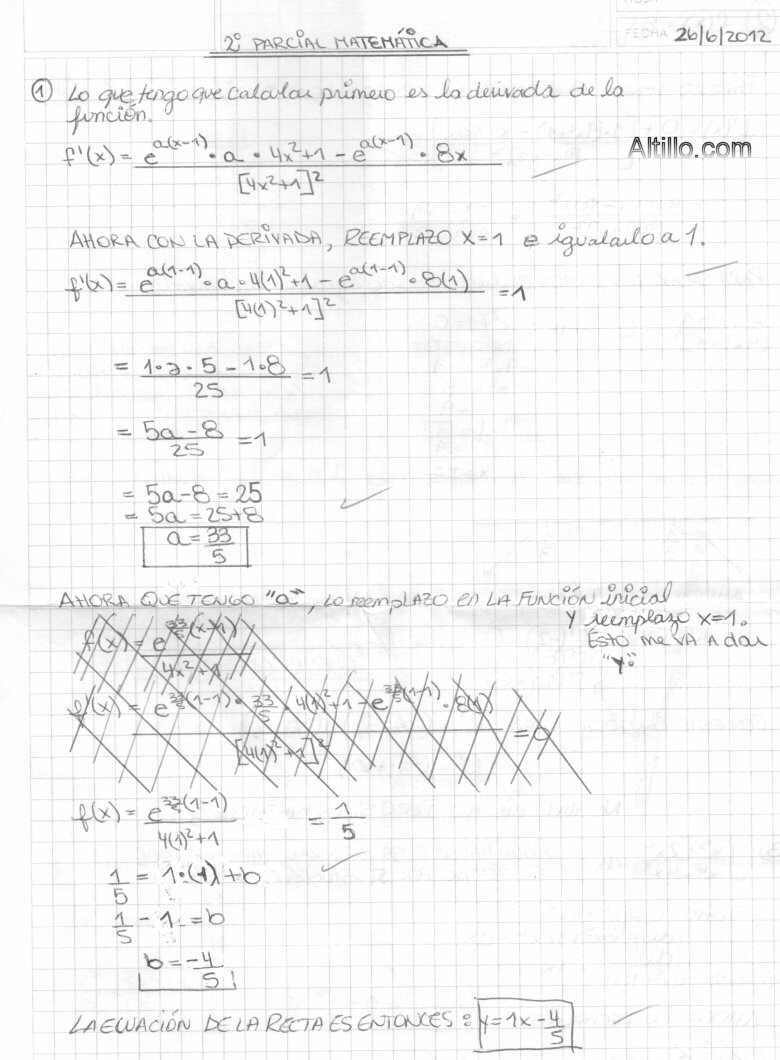 FECHA 26/6/2012
2° PARCIAL MATEMÁTICA
Altillo.com
① Lo que tengo que calcular primero es la derivada de la
función.
f'(x) = e^a(x-1) • a • 4x²+1 - e^a(x-1) • 8x
[4x²+1]²
AHORA CON LA DERIVADA, REEMPLAZO X=1 e igualarlo a 1.
f'(x) = e^a(1-1) • a • 4(1)²+1 - e^a(1-1) • 8(1) = 1
[4(1)²+1]²
= 1•a•5 - 1•8 = 1
25
= 5a-8 = 1
25
= 5a-8 = 25
= 5a = 25+8
a = 33/5
AHORA QUE TENGO "a", LO reemplAZO en LA FUNCIÓN inicial
Y reemplazo x=1.
Esto me VA A dar
"Y".
f(x) = e^33/5(x-1)
4x²+1
f'(x) = e^33/5(1-1) • 33/5 • 4(1)²+1 - e^33/5(1-1) • 8(1) = 0
[4(1)²+1]²
f(x) = e^33/5(1-1) = 1/5
4(1)²+1
1/5 = 1•(1)+b
1/5 - 1 = b
b = -4/5
LA ECUACIÓN DE LA RECTA ES ENTONCES: y=1x-4/5